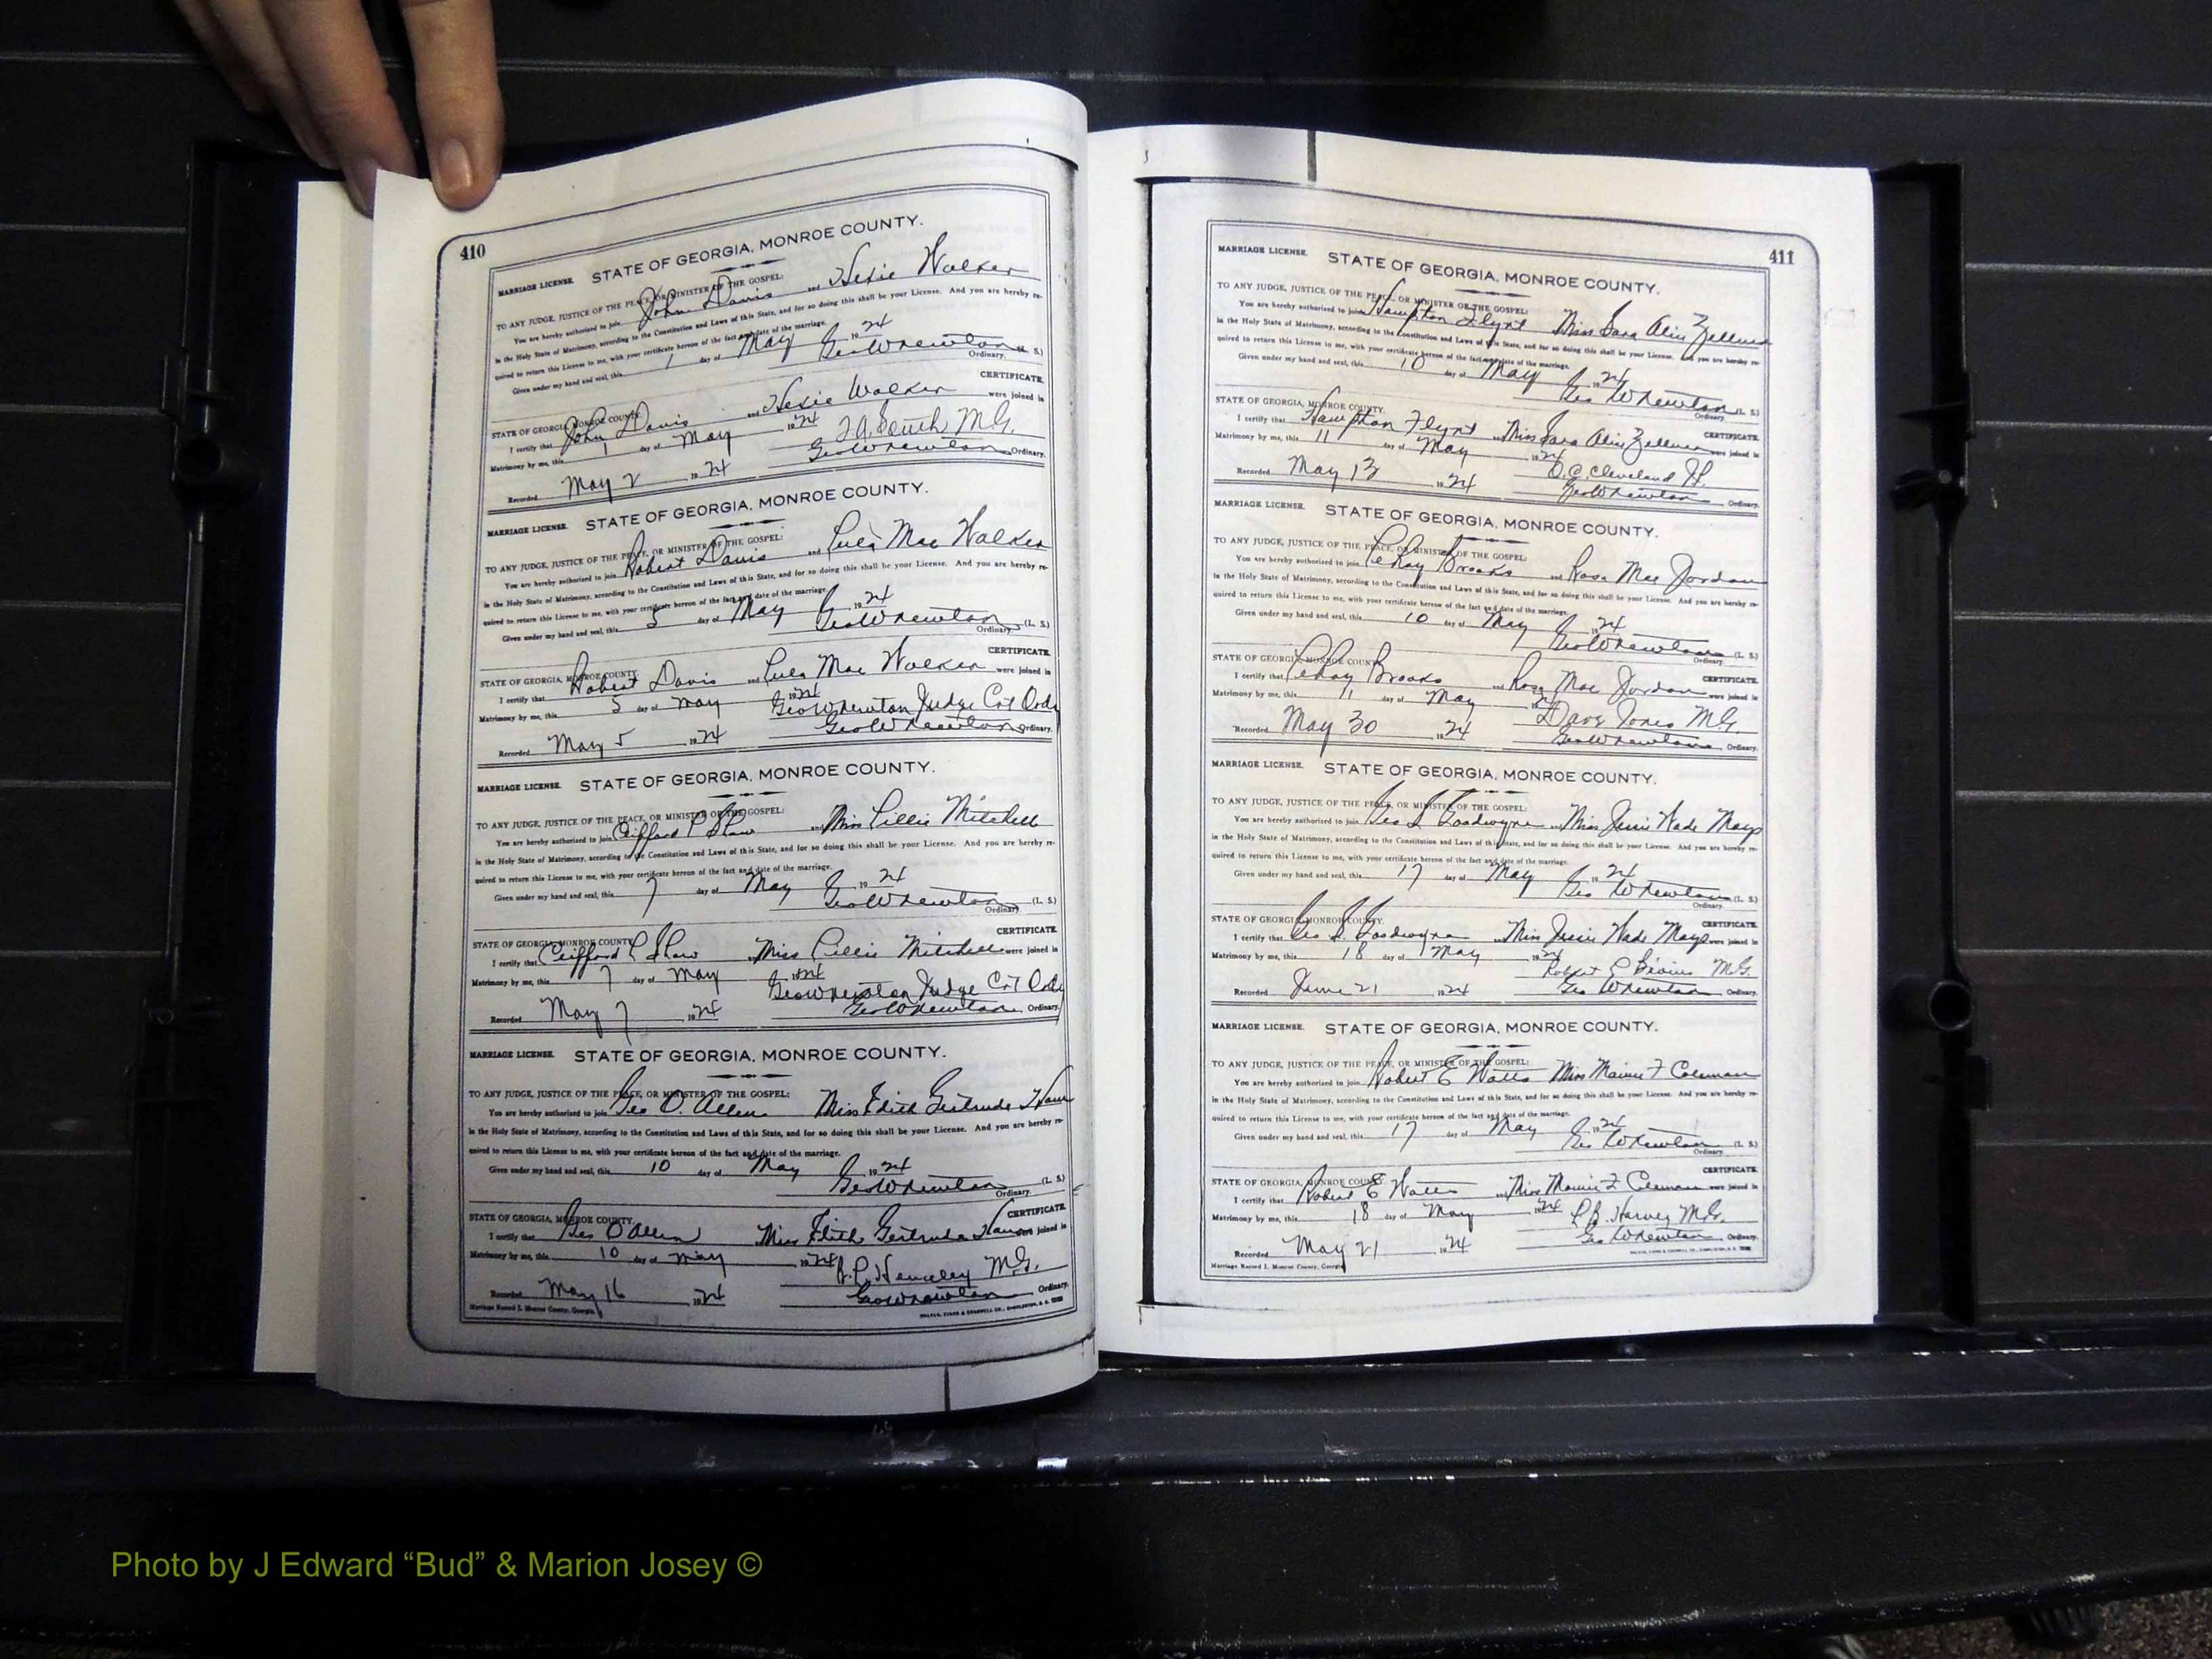 410
MARRIAGE LICENSE. STATE OF GEORGIA, MONROE COUNTY.
TO ANY JUDGE, JUSTICE OF THE PEACE, OR MINISTER OF THE GOSPEL:
You are hereby authorized to join John Davis and Walker
in the Holy State of Matrimony, according to the Constitution and Laws of this State, and for so doing this shall be your License. And you are hereby re-
quired to return this License to me, with your certificate hereon of the fact and date of the marriage.
Given under my hand and seal, this 1 day of May 1924
Geo W Newton (L. S.)
Ordinary.
CERTIFICATE.
STATE OF GEORGIA, MONROE COUNTY.
I certify that John Davis and Walker were joined in
Matrimony by me, this 1 day of May 1924
M.G.
Recorded May 2 1924 Geo W Newton Ordinary.
MARRIAGE LICENSE. STATE OF GEORGIA, MONROE COUNTY.
TO ANY JUDGE, JUSTICE OF THE PEACE, OR MINISTER OF THE GOSPEL:
You are hereby authorized to join Robert Davis and Lula Mae Walker
in the Holy State of Matrimony, according to the Constitution and Laws of this State, and for so doing this shall be your License. And you are hereby re-
quired to return this License to me, with your certificate hereon of the fact and date of the marriage.
Given under my hand and seal, this 5 day of May 1924
Geo W Newton (L. S.)
Ordinary.
CERTIFICATE.
STATE OF GEORGIA, MONROE COUNTY.
I certify that Robert Davis and Lula Mae Walker were joined in
Matrimony by me, this 5 day of May 1924
Geo W Newton Judge Crt Ordy
Recorded May 5 1924 Geo W Newton Ordinary.
MARRIAGE LICENSE. STATE OF GEORGIA, MONROE COUNTY.
TO ANY JUDGE, JUSTICE OF THE PEACE, OR MINISTER OF THE GOSPEL:
You are hereby authorized to join Clifford L Shaw and Miss Lillie Mitchell
in the Holy State of Matrimony, according to the Constitution and Laws of this State, and for so doing this shall be your License. And you are hereby re-
quired to return this License to me, with your certificate hereon of the fact and date of the marriage.
Given under my hand and seal, this 7 day of May 1924
Geo W Newton (L. S.)
Ordinary.
CERTIFICATE.
STATE OF GEORGIA, MONROE COUNTY.
I certify that Clifford L Shaw Miss Lillie Mitchell were joined in
Matrimony by me, this 7 day of May 1924
Geo W Newton Judge Crt Ordy
Recorded May 7 1924 Geo W Newton Ordinary.
MARRIAGE LICENSE. STATE OF GEORGIA, MONROE COUNTY.
TO ANY JUDGE, JUSTICE OF THE PEACE, OR MINISTER OF THE GOSPEL:
You are hereby authorized to join Geo O. Allen Miss Edith Gertrude Ham
in the Holy State of Matrimony, according to the Constitution and Laws of this State, and for so doing this shall be your License. And you are hereby re-
quired to return this License to me, with your certificate hereon of the fact and date of the marriage.
Given under my hand and seal, this 10 day of May 1924
Geo W Newton (L. S.)
Ordinary.
CERTIFICATE.
STATE OF GEORGIA, MONROE COUNTY.
I certify that Geo O Allen Miss Edith Gertrude Ham were joined in
Matrimony by me, this 10 day of May 1924
M.G.
Recorded May 16 1924 Geo W Newton Ordinary.
Marriage Record I. Monroe County, Georgia
WALKER, EVANS & COGSWELL CO., CHARLESTON, S. C.
411
MARRIAGE LICENSE. STATE OF GEORGIA, MONROE COUNTY.
TO ANY JUDGE, JUSTICE OF THE PEACE, OR MINISTER OF THE GOSPEL:
You are hereby authorized to join Hampton Flynt Miss Sara Alice Zellner
in the Holy State of Matrimony, according to the Constitution and Laws of this State, and for so doing this shall be your License. And you are hereby re-
quired to return this License to me, with your certificate hereon of the fact and date of the marriage.
Given under my hand and seal, this 10 day of May 1924
Geo W Newton (L. S.)
Ordinary.
STATE OF GEORGIA, MONROE COUNTY.
CERTIFICATE.
I certify that Hampton Flynt Miss Sara Alice Zellner were joined in
Matrimony by me, this 11 day of May 1924
Cleveland
Recorded May 13 1924 Geo W Newton Ordinary.
MARRIAGE LICENSE. STATE OF GEORGIA, MONROE COUNTY.
TO ANY JUDGE, JUSTICE OF THE PEACE, OR MINISTER OF THE GOSPEL:
You are hereby authorized to join LeRoy Brooks and Rosa Mae Jordan
in the Holy State of Matrimony, according to the Constitution and Laws of this State, and for so doing this shall be your License. And you are hereby re-
quired to return this License to me, with your certificate hereon of the fact and date of the marriage.
Given under my hand and seal, this 10 day of May 1924
Geo W Newton (L. S.)
Ordinary.
STATE OF GEORGIA, MONROE COUNTY.
CERTIFICATE.
I certify that LeRoy Brooks and Rosa Mae Jordan were joined in
Matrimony by me, this 11 day of May 1924
Dave Jones M.G.
Recorded May 30 1924 Geo W Newton Ordinary.
MARRIAGE LICENSE. STATE OF GEORGIA, MONROE COUNTY.
TO ANY JUDGE, JUSTICE OF THE PEACE, OR MINISTER OF THE GOSPEL:
You are hereby authorized to join Geo S Goodwyne Miss Jessie Wade Mays
in the Holy State of Matrimony, according to the Constitution and Laws of this State, and for so doing this shall be your License. And you are hereby re-
quired to return this License to me, with your certificate hereon of the fact and date of the marriage.
Given under my hand and seal, this 17 day of May 1924
Geo W Newton (L. S.)
Ordinary.
STATE OF GEORGIA, MONROE COUNTY.
CERTIFICATE.
I certify that Geo S Goodwyne Miss Jessie Wade Mays were joined in
Matrimony by me, this 18 day of May 1924
Robert Bivins M.G.
Recorded June 21 1924 Geo W Newton Ordinary.
MARRIAGE LICENSE. STATE OF GEORGIA, MONROE COUNTY.
TO ANY JUDGE, JUSTICE OF THE PEACE, OR MINISTER OF THE GOSPEL:
You are hereby authorized to join Robert E Watts Miss Mamie F Coleman
in the Holy State of Matrimony, according to the Constitution and Laws of this State, and for so doing this shall be your License. And you are hereby re-
quired to return this License to me, with your certificate hereon of the fact and date of the marriage.
Given under my hand and seal, this 17 day of May 1924
Geo W Newton (L. S.)
Ordinary.
CERTIFICATE.
STATE OF GEORGIA, MONROE COUNTY.
I certify that Robert E Watts Miss Mamie F Coleman were joined in
Matrimony by me, this 18 day of May 1924
Harvey M.G.
Recorded May 21 1924 Geo W Newton Ordinary.
Marriage Record I. Monroe County, Georgia
WALKER, EVANS & COGSWELL CO., CHARLESTON, S. C.
Photo by J Edward “Bud” & Marion Josey ©